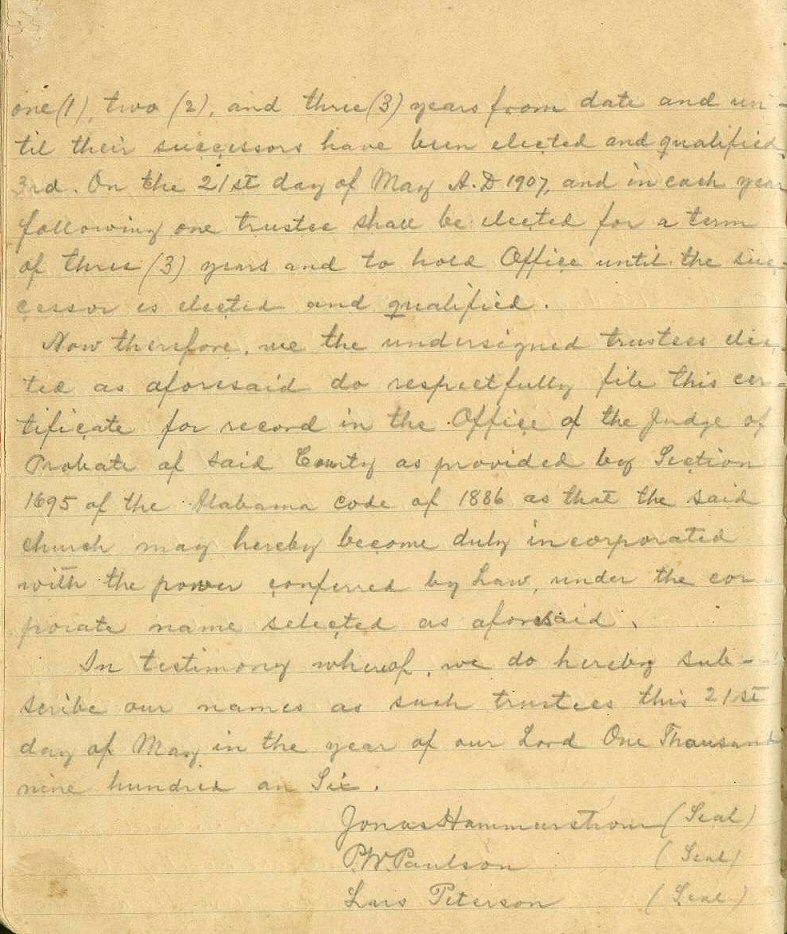 one (1), two (2), and three (3) years from date and un-
til their successors have been elected and qualified.
3rd. On the 21st day of May A.D 1907, and in each year
following one trustee shall be elected for a term
of three (3) years and to hold Office until the suc-
cessor is elected and qualified.
Now therefore, we the undersigned trustees elec-
ted as aforesaid do respectfully file this cer-
tificate for record in the Office of the Judge of
Probate of said County as provided by Section
1695 of the Alabama code of 1886 as that the said
church may hereby become duly incorporated
with the power conferred by Law, under the cor-
porate name selected as aforesaid.
In testimony whereof, we do hereby sub-
scribe our names as such trustees this 21st
day of May in the year of our Lord One Thousand
nine hundred an Six.
Jonas Hammerstrom (Seal)
P.W. Paulson (Seal)
Lars Peterson (Seal)